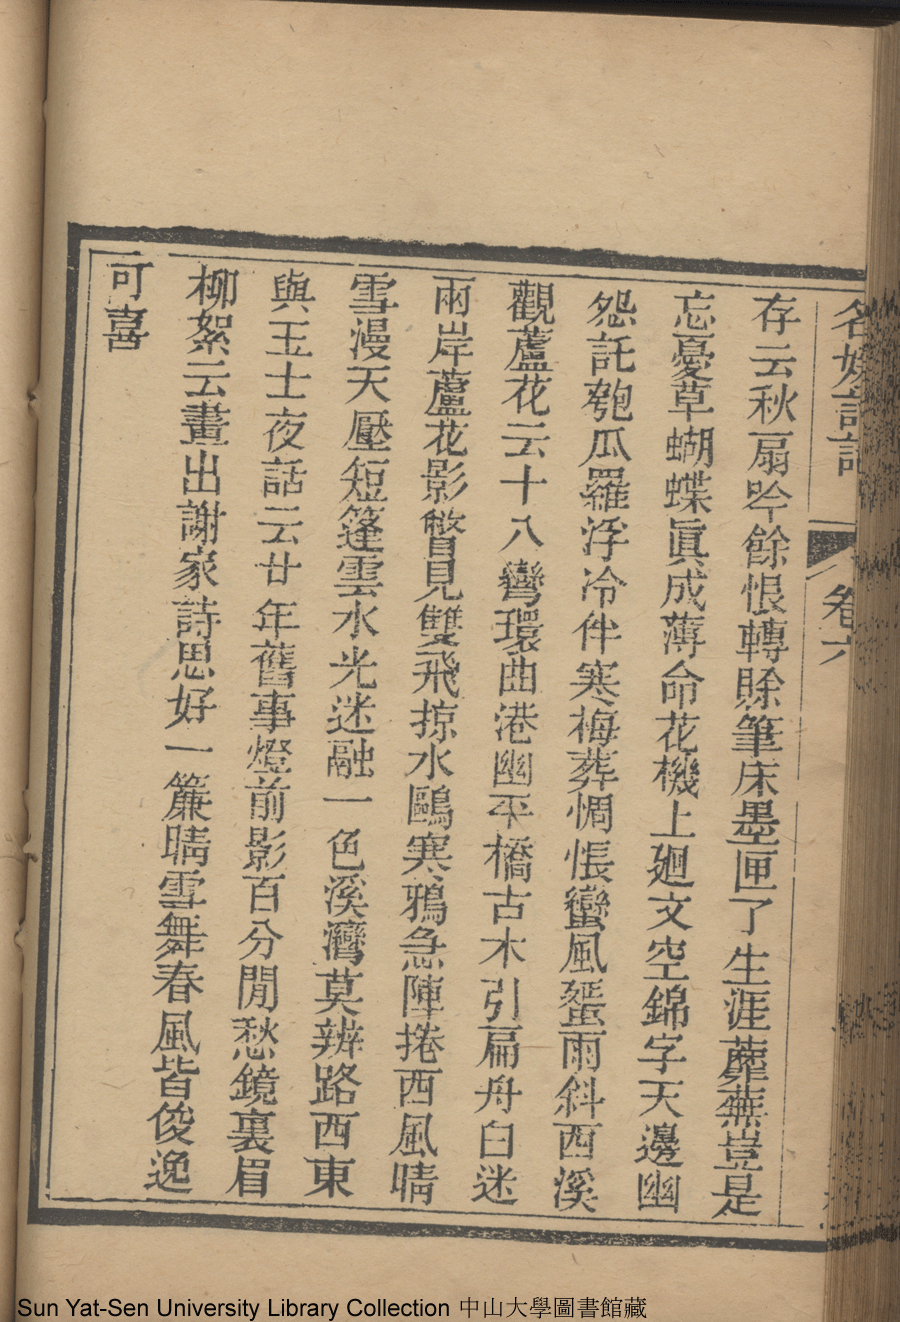 名媛詩話
卷六
存云秋扇吟餘恨轉賒筆床墨匣了生涯蘼蕪豈是
忘憂草蝴蝶眞成薄命花機上廻文空錦字天邊幽
怨託匏瓜羅浮冷伴寒梅葬惆悵蠻風蜑雨斜西溪
觀蘆花云十八彎環曲港幽平橋古木引扁舟白迷
兩岸蘆花影瞥見雙飛掠水鷗寒鴉急陣捲西風晴
雪漫天壓短篷雲水光迷融一色溪灣莫辨路西東
與玉士夜話云廿年舊事燈前影百分閒愁鏡裏眉
柳絮云畫出謝家詩思好一簾晴雪舞春風皆俊逸
可喜
Sun Yat-Sen University Library Collection 中山大學圖書館藏